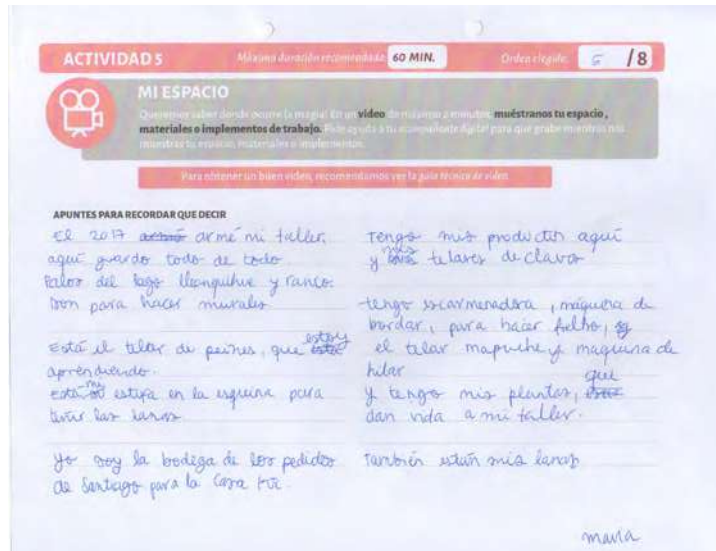 ACTIVIDAD 5
Máxima duración recomendada: 60 MIN.
Orden elegido: 5 /8
MI ESPACIO
Queremos saber donde ocurre la magia! En un video de máximo 2 minutos, muéstranos tu espacio,
materiales o implementos de trabajo. Pide ayuda a tu acompañante digital para que grabe mientras nos
muestras tu espacio, materiales o implementos.
Para obtener un buen video, recomendamos ver la guía técnica de video
APUNTES PARA RECORDAR QUE DECIR
El 2017 armé mi taller,
aquí guardo todo de todo
Palos del lago Llanquihue y ranco.
Son para hacer murales
Está el telar de peines, que estoy
aprendiendo.
está mi estufa en la esquina para
teñir las lanas
Yo soy la bodega de los pedidos
de Santiago para la Casa
Tengo mis productos aquí
y mis telares de clavos
tengo escarmenadora, máquina de
bordar, para hacer fieltro,
el telar mapuche y maquina de
hilar
y tengo mis plantas, que
dan vida a mi taller.
También están mis lanas
maría